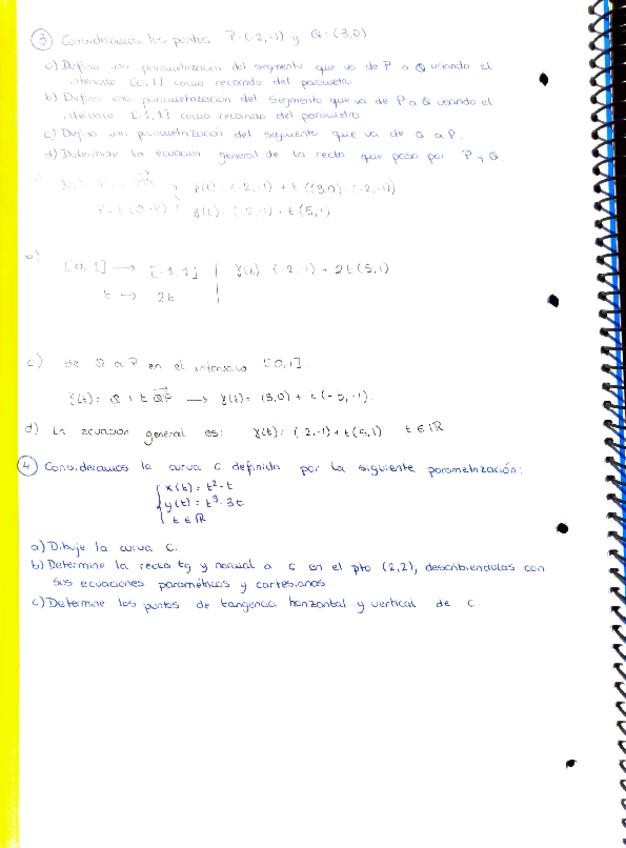 ③ Consideramos los puntos P=(-2,-1) y Q=(3,0)
a) Defina una parametrización del segmento que va de P a Q usando el
intervalo [0,1] como recorrido del parametro
b) Defina una parametrización del segmento que va de P a Q usando el
intervalo [-1,1] como recorrido del parametro
c) Defina una parametrización del segmento que va de Q a P.
d) Determine la ecuacion general de la recta que pasa por P y Q.
γ(t) = (-2,-1) + t ((3,0) - (-2,-1))
P + t (Q-P) γ(t) = (-2,-1) + t (5,1)
b) [0,1] → [-1,1] | γ(t) (-2,-1) + 2t(5,1)
t → 2t
c) de Q a P en el intervalo [0,1].
γ(t) = Q + t QP → γ(t) = (3,0) + t(-5,-1).
d) La ecuacion general es: γ(t) = (-2,-1) + t(5,1) t ∈ ℝ
④ Consideramos la curva C definida por la siguiente parametrización:
x(t) = t² - t
y(t) = t³ - 3t
t ∈ ℝ
a) Dibuje la curva C.
b) Determine la recta tg y normal a C en el pto (2,2), describiendolas con
sus ecuaciones paramétricas y cartesianas
c) Determine los puntos de tangencia horizontal y vertical de C